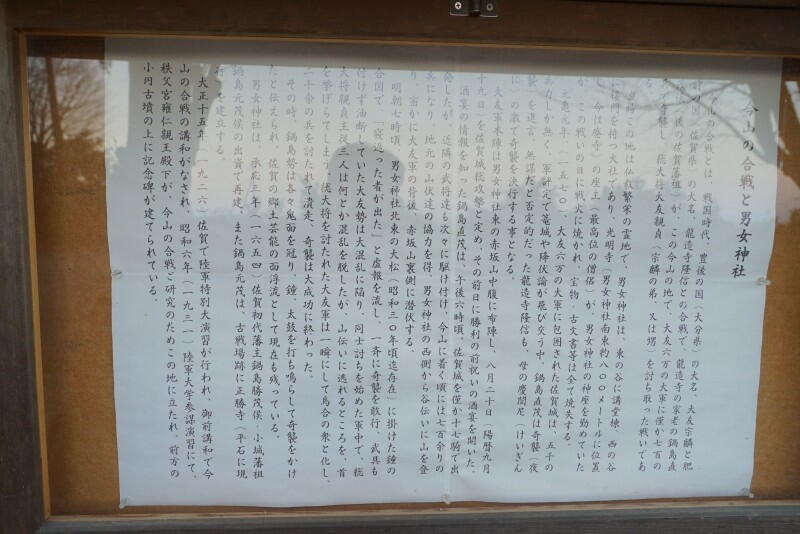 今山の合戦と男女神社
の合戦とは、戦国時代、豊後の国(大分県)の大名、大友宗麟と肥
の国(佐賀県)の大名、龍造寺隆信との合戦で、龍造寺の家老の鍋島直
後の佐賀藩祖)が、この今山の地で、大友六万の大軍に僅か七百の
で奇襲し、総大将大友親貞(宗麟の弟、又は甥)を討ち取った戦いであ
の地は仏教繁栄の霊地で、男女神社は、東の谷に講堂棟、西の谷
門を持つ大社であり、光明寺(男女神社南東約八〇〇メートルに位置
今は廃寺)の座主(最高位の僧侶)が、男女神社の神座を勤めていた
が、この戦いの日に戦火に焼かれ、宝物・古文書等は全て焼失する。
元亀元年(一五七〇)、大友六万の大軍に包囲された佐賀城は、五千の
兵力しか無く、軍評定で篭城や降伏論が飛び交う中、鍋島直茂は奇襲(夜
襲)を進言、無謀だと否定的だった龍造寺隆信も、母の慶誾尼(けいぎん
の激で奇襲を決行する事となる。
大友軍本陣は男女神社東の赤坂山中腹に布陣し、八月二十日(陽暦九月
十九日)を佐賀城総攻撃と定め、その前日に勝利の前祝いの酒宴を開いた。
酒宴の情報を知った鍋島直茂は、午後六時頃、佐賀城を僅か十七騎で出
発したが、近隣の武将達も次々に駆け付け、今山に着く頃には七百余りの
兵になり、地元の山伏達の協力を得、男女神社の西側から谷伝いに山を登
り、密かに大友軍の背後、赤坂山裏側に潜伏する。
明朝七時頃、男女神社北東の大松(昭和三〇年頃迄存在)に掛けた鐘の
合図で、「寝返った者が出た」と虚報を流し、一斉に奇襲を敢行、武具も
付けず油断していた大友勢は大混乱に陥り、同士討ちを始めた軍中で、総
大将親貞主従三人は何とか混乱を脱したが、山伝いに逃れるところを、首
を挙げられてしまう。総大将を討たれた大友軍は一瞬にして烏合の衆と化し、
二千余の兵を討たれて潰走、奇襲は大成功に終わった。
その時、鍋島勢は各々鬼面を冠り、鐘、太鼓を打ち鳴らして奇襲をかけ
たと伝えられ、佐賀の郷土芸能の面浮流として現在も残っている。
男女神社は、承応三年(一六五四)佐賀初代藩主鍋島勝茂侯、小城藩祖
鍋島元茂侯の出資で再建、また鍋島元茂は、古戦場跡に正勝寺(平石に現
を建立する。
大正十五年(一九二六)佐賀で陸軍特別大演習が行われ、御前講和で今
山の合戦の講和がなされ、昭和六年(一九三一)陸軍大学参謀演習にて、
秩父宮雍仁親王殿下が、今山の合戦ご研究のためこの地に立たれ、前方の
小円古墳の上に記念碑が建てられている。